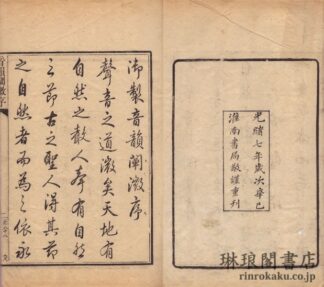 光緒七年歲次辛巳
淮南書局敬謹重刊
御製音韻闡微序
聲音之道微矣天地有
自然之聲人聲有自然
之節古之聖人得其節
之自然者而為之依永
琳琅閣書店
rinrokaku.co.jp